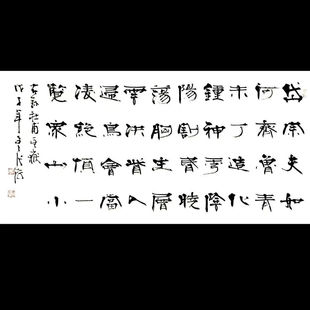 岱宗夫如
何齊魯青
未了造化
鍾神秀陰
陽割昏曉
蕩胸生層
雲決眥入
歸鳥會當
凌絕頂一
覽眾山小
杜甫望嶽
戊子年